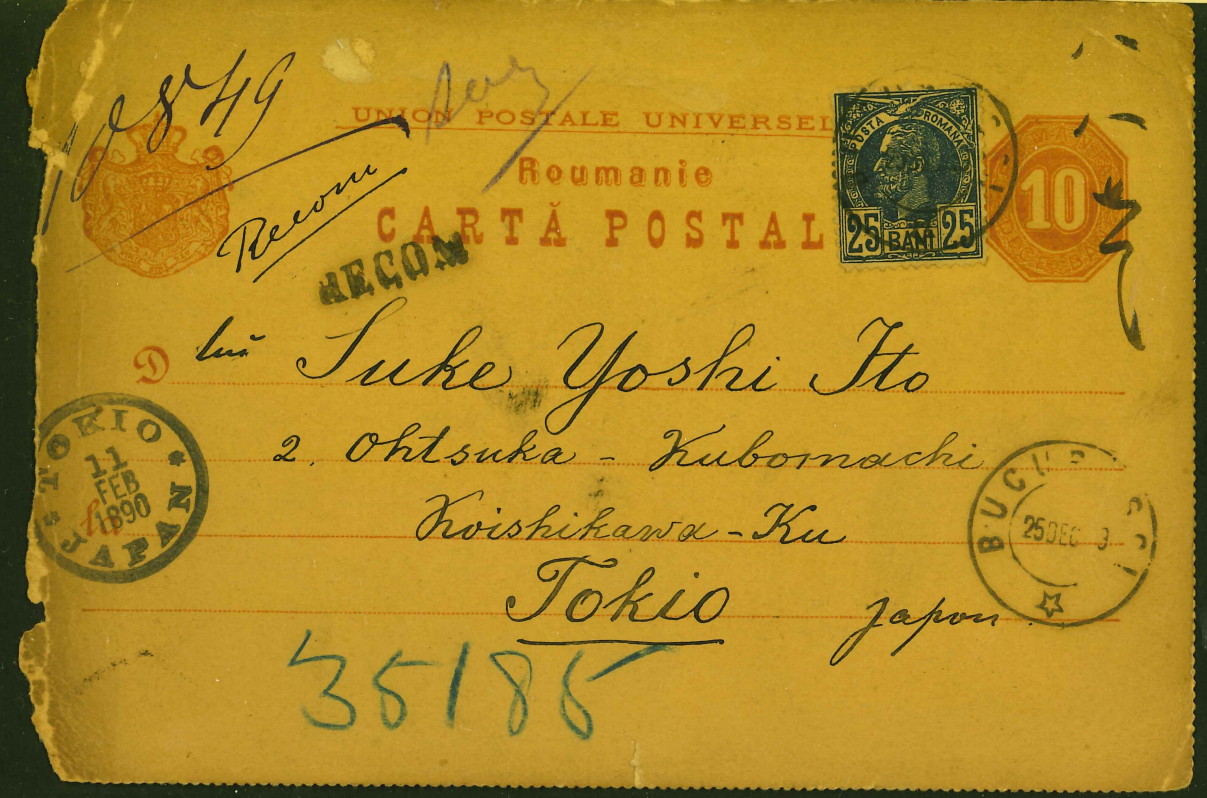 No 849
UNION POSTALE UNIVERSEL
Recom
Roumanie
CARTĂ POSTAL
RECOM
POSTA ROMANA
25 BANI 25
10
D lui Suke Yoshi Ito
2. Ohtsuka - Kubomachi
Koishikawa - Ku
Tokio
Japon
TOKIO
11
FEB
1890
JAPAN
BUCUR SCI
25 DEC
35185